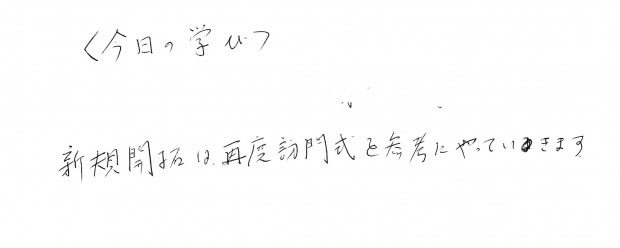 〈今日の学び〉
新規開拓は再度訪問式を参考にやっていきます